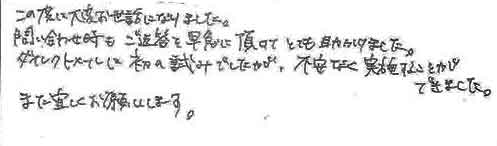 この度は大変お世話になりました。
問い合わせ時もご返答を早急に頂けてとても助かりました。
ダイレクトメールは初の試みでしたが、不安なく実施することが
できました。
また宜しくお願いします。